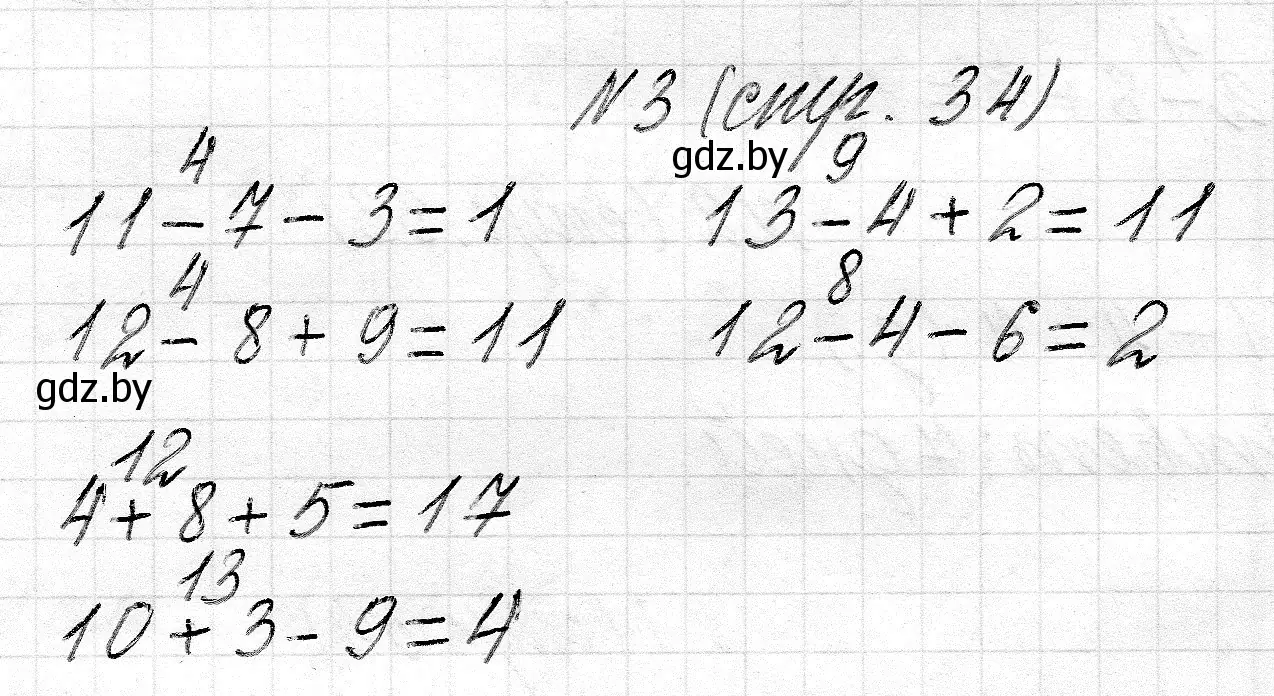 N3 (стр. 34)
gdz.by
4
11 - 7 - 3 = 1
9
13 - 4 + 2 = 11
4
12 - 8 + 9 = 11
8
12 - 4 - 6 = 2
gdz.by
12
4 + 8 + 5 = 17
13
10 + 3 - 9 = 4